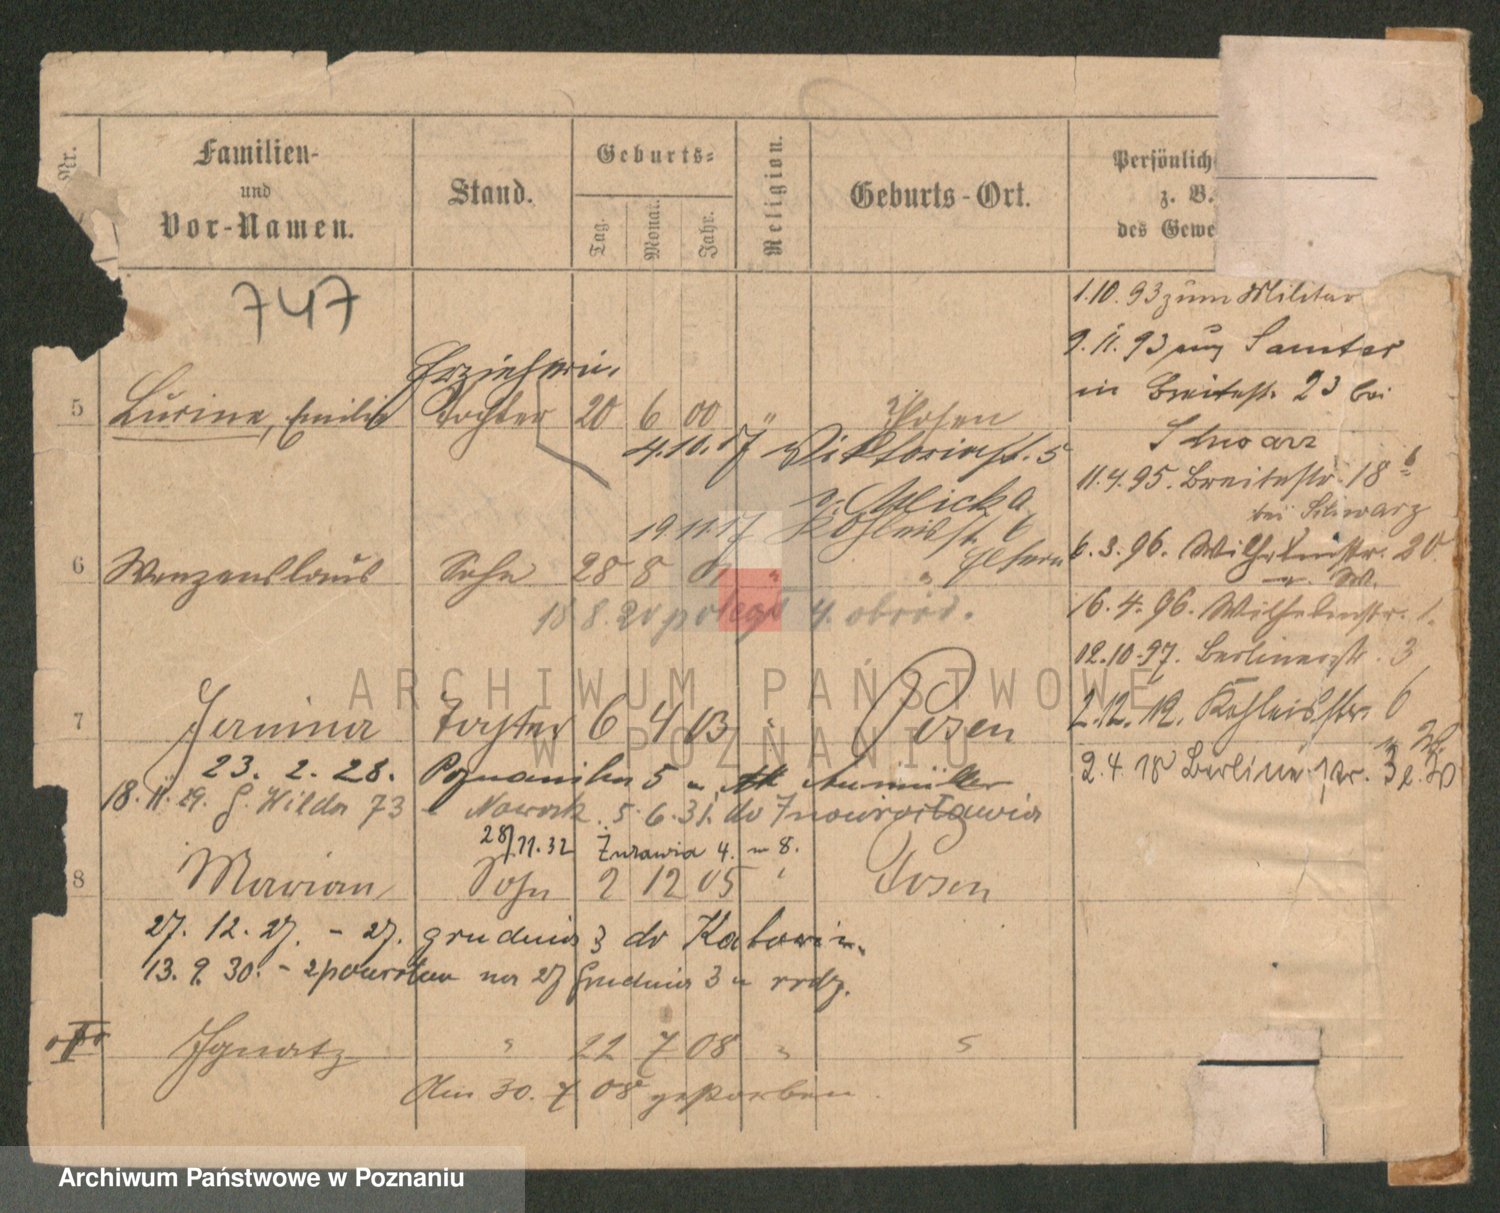 Nr.
Familien-
und
Vor-Namen.
Stand.
Geburts-
Tag.
Monat.
Jahr.
Religion.
Geburts-Ort.
Persönlich
z. B.
des Gewe
747
1.10.93 zum Militär
9.11.93 aus Samter
in Breitestr. 23 bei
Schwarz
11.4.95. Breitestr. 18
bei Schwarz
6.3.96. Wilhelmstr. 20
16.4.96. Wilhelmstr. 1.
12.10.97. Berlinerstr. 3
2.12.12. Kohleisstr. 6
2.4.18 Berlinerstr.
Erzieherin.
5 Emilie Tochter 20 6 00 " Posen
4.10.17 Viktoriastr. 5
v. Micka
19 11 17 Kohleisstr. 6
Eltern
6 Wenzenslaus Sohn 28 8 " "
18 8. 20 poległ 4.
7 Janina Tochter 6 4 03 " Posen
23. 2. 28.
18. 11. 29. G. Wilda 73 - Nowak. 5. 6. 31. do Inowrocławia
28/11.32 Żurawia 4. m 8.
8 Marian Sohn 2 12 05 " Posen
27. 12. 27. - 27. grudnia 3 do Katowic.
13. 9. 30. - zpowrotem na 27 Grudnia 3 u rodz.
Ignatz " 22 7 08 " "
Am 30. 7 08 gestorben.
ARCHIWUM PAŃSTWOWE
W POZNANIU
Archiwum Państwowe w Poznaniu